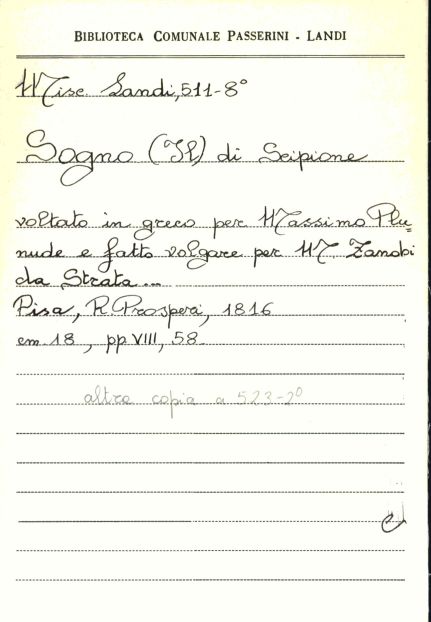 BIBLIOTECA COMUNALE PASSERINI - LANDI
Misc. Landi, 511-8°
Sogno (Il) di Scipione
voltato in greco per Massimo Plu=
nude e fatto volgare per M. Zanobi
da Strata...
Pisa, R. Prosperi, 1816
cm. 18, pp. VIII, 58.
altra copia a 523-2°